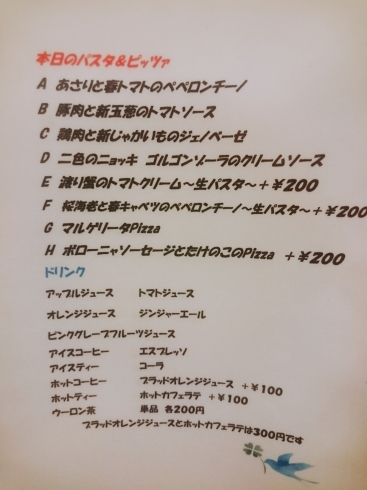 本日のパスタ&ピッツァ
A あさりと春トマトのペペロンチーノ
B 豚肉と新玉葱のトマトソース
C 鶏肉と新じゃがいものジェノベーゼ
D 二色のニョッキ ゴルゴンゾーラのクリームソース
E 渡り蟹のトマトクリーム～生パスタ～＋￥200
F 桜海老と春キャベツのペペロンチーノ～生パスタ～＋￥200
G マルゲリータPizza
H ボローニャソーセージとたけのこのPizza ＋￥200
ドリンク
アップルジュース トマトジュース
オレンジジュース ジンジャーエール
ピンクグレープフルーツジュース
アイスコーヒー エスプレッソ
アイスティー コーラ
ホットコーヒー ブラッドオレンジジュース ＋￥100
ホットティー ホットカフェラテ ＋￥100
ウーロン茶 単品 各200円
ブラッドオレンジジュースとホットカフェラテは300円です